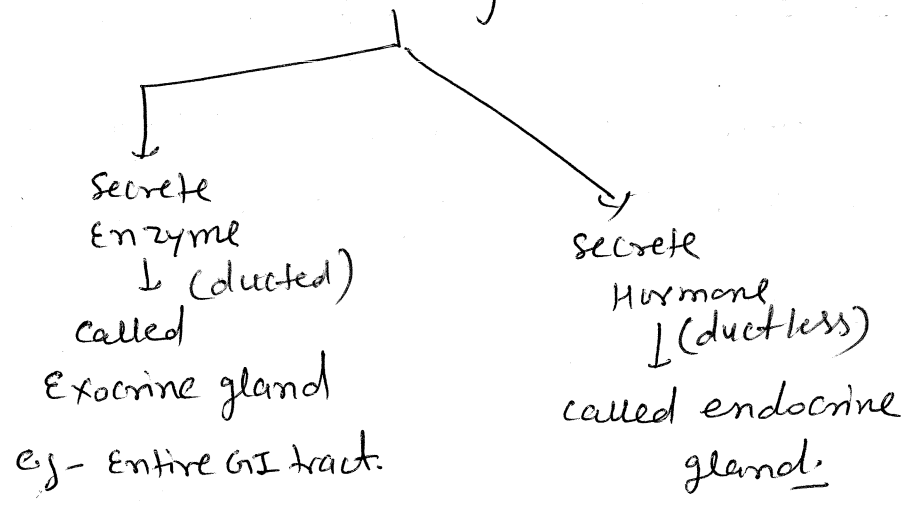 Secrete
Enzyme
↓ (ducted)
Called
Exocrine gland
eg - Entire GI tract.
secrete
Hormone
↓ (ductless)
called endocrine
gland.